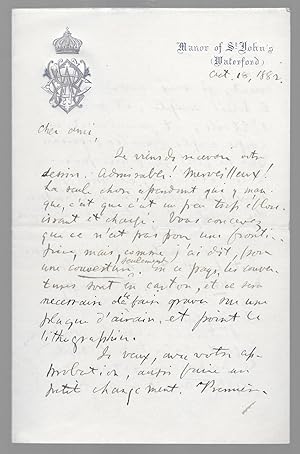 Manor of St John's
(Waterford)
Oct. 18, 1882
Cher ami,
Je viens de recevoir votre
dessin. Admirable! Merveilleux!
La seule chose cependant que y man-
que, c'est que c'est un peu trop éblou-
issant et chargé. Vous concevez
que ce n'est pas pour une fronti-
spice, mais, comme j'ai dit, pour
seulement
une couverture. En ce pays, les couver-
tures sont en carton, et ce sera
necessaire de faire graver sur une
plaque d'airain, et point le
lithographier.
Je veux, avec votre ap-
probation, aussi faire un
petit changement. Premier-